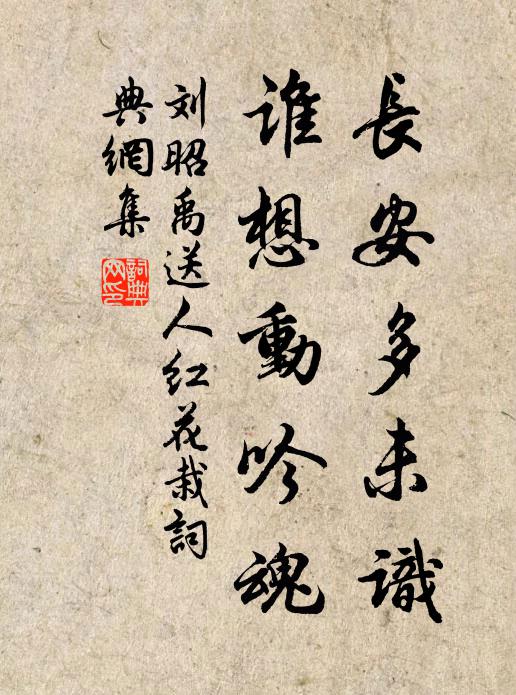 長安多未識
谁想動吟魂
刘昭禹送人红花栽詞
典網集
詞典
网印